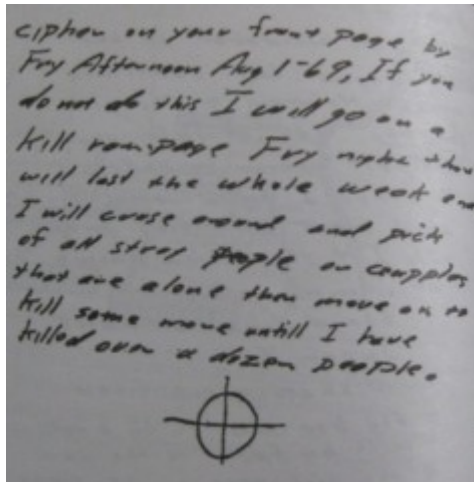 cipher on your front page by
Fry Afternoon Aug 1-69, If you
do not do this I will go on a
kill ram-page Fry night that
will last the whole week end
I will cruse around and pick
of all stray people or coupples
that are alone then move on to
kill some more untill I have
killed over a dozen people.